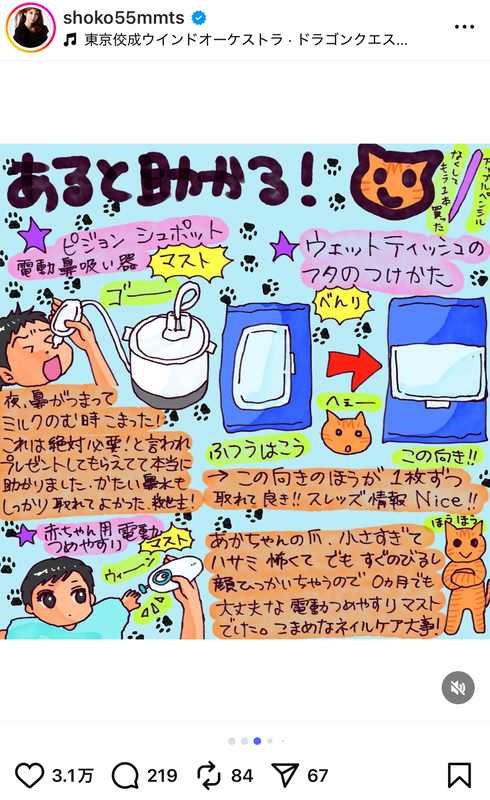 shoko55mmts
東京佼成ウインドオーケストラ · ドラゴンクエス...
あると助かる!
アップルペンシル
なくして
もう1本
買った
ピジョン シュポット
電動鼻吸い器
マスト
ゴー
ウェットティッシュの
フタのつけかた
べんり
夜、鼻がつまって
ミルクのむ時こまった!
これは絶対必要!と言われ
プレゼントしてもらえてて本当に
助かりました。かたい鼻水も
しっかり取れてよかった。救世主!
ふつうはこう
へぇー
この向き!!
→ この向きのほうが1枚ずつ
取れて良き!!スレッズ情報 Nice!!
赤ちゃん用電動
つめやすり
マスト
ウィーン
あかちゃんの爪、小さすぎて
ハサミ怖くて でも すぐのびるし
顔ひっかいちゃうので 0ヵ月でも
大丈夫な電動つめやすりマスト
でした。こまめなネイルケア大事!
ほうほう
3.1万
219
84
67